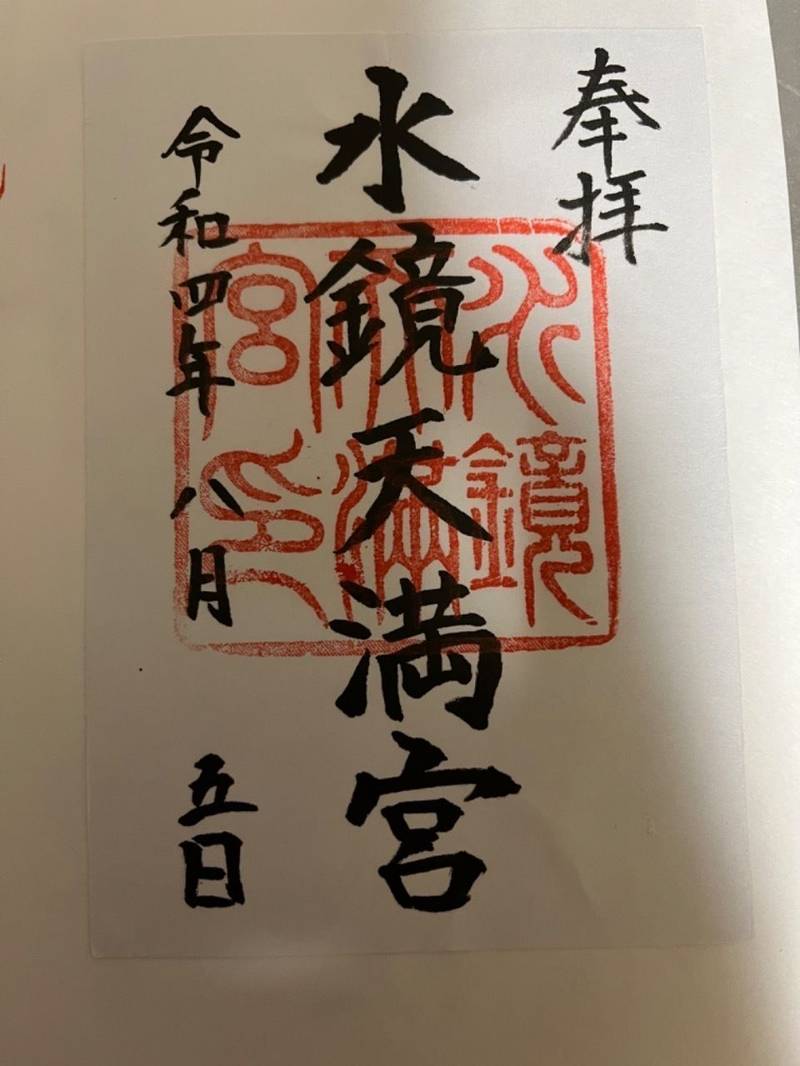 奉拝
水鏡天満宮
令和四年八月五日
水鏡
天満
宮印